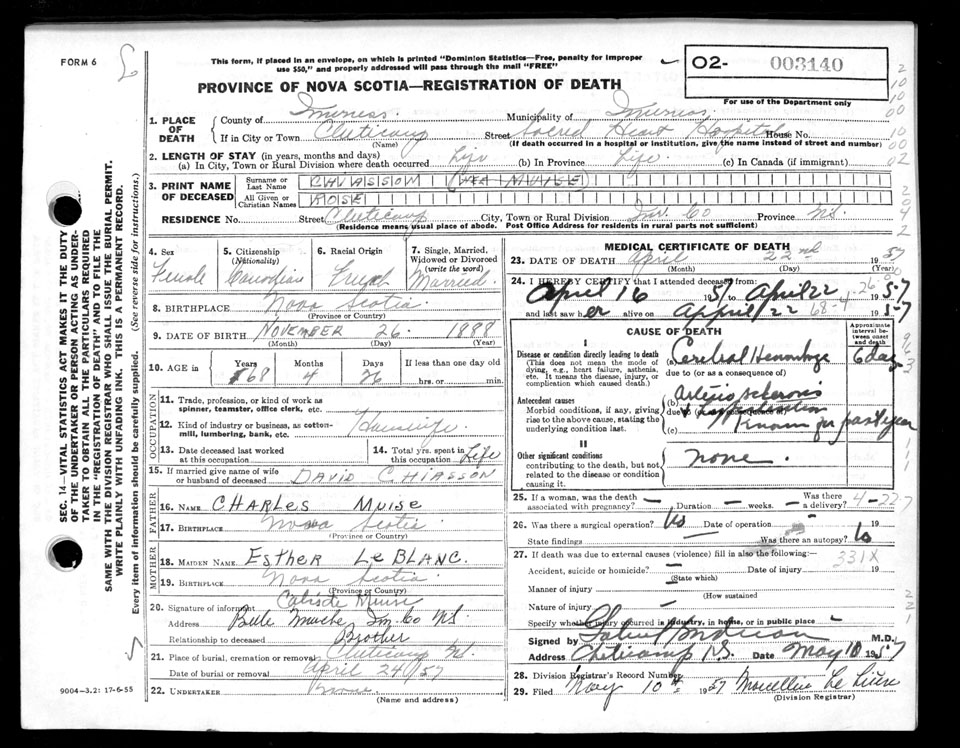 FORM 6
This form, if placed in an envelope, on which is printed "Dominion Statistics—Free, penalty for improper
use $50," and properly addressed will pass through the mail "FREE"
PROVINCE OF NOVA SCOTIA—REGISTRATION OF DEATH
O2- 003140
For use of the Department only
SEC. 14—VITAL STATISTICS ACT MAKES IT THE DUTY
OF THE UNDERTAKER OR PERSON ACTING AS UNDER-
TAKER TO OBTAIN ALL THE PARTICULARS REQUIRED
IN THE "REGISTRATION OF DEATH" AND TO FILE THE
SAME WITH THE DIVISION REGISTRAR WHO SHALL ISSUE THE BURIAL PERMIT.
WRITE PLAINLY WITH UNFADING INK. THIS IS A PERMANENT RECORD.
Every item of information should be carefully supplied. (See reverse side for instructions.)
1. PLACE OF DEATH
County of Inverness Municipality of Inverness
If in City or Town Cheticamp Street Sacred Heart Hospital House No.
(Name) (If death occurred in a hospital or institution, give the name instead of street and number)
2. LENGTH OF STAY (in years, months and days)
(a) In City, Town or Rural Division where death occurred Life (b) In Province Life (c) In Canada (if immigrant)
3. PRINT NAME OF DECEASED
Surname or Last Name CHIASSON (NEE MUISE)
All Given or Christian Names ROSE
RESIDENCE No. Street Cheticamp City, Town or Rural Division Inv. Co Province N.S.
(Residence means usual place of abode. Post Office Address for residents in rural parts not sufficient)
4. Sex Female
5. Citizenship (Nationality) Canadian
6. Racial Origin French
7. Single, Married, Widowed or Divorced (write the word) Married
8. BIRTHPLACE Nova Scotia
(Province or Country)
9. DATE OF BIRTH NOVEMBER 26 1888
(Month) (Day) (Year)
10. AGE in Years 68 Months 4 Days 26 If less than one day old
hrs. or min.
OCCUPATION
11. Trade, profession, or kind of work as
spinner, teamster, office clerk, etc.
12. Kind of industry or business, as cotton-
mill, lumbering, bank, etc. Housewife
13. Date deceased last worked
at this occupation
14. Total yrs. spent in
this occupation Life
15. If married give name of wife
or husband of deceased DAVID CHIASSON
FATHER
16. NAME CHARLES MUISE
17. BIRTHPLACE Nova Scotia
(Province or Country)
MOTHER
18. MAIDEN NAME ESTHER LE BLANC.
19. BIRTHPLACE Nova Scotia
(Province or Country)
20. Signature of informant Muise
Address Belle Marche Inv. Co N.S.
Relationship to deceased Brother
21. Place of burial, cremation or removal Cheticamp N.S.
Date of burial or removal April 24/57
22. UNDERTAKER None
(Name and address)
9004—3.2: 17-6-55
MEDICAL CERTIFICATE OF DEATH
23. DATE OF DEATH April 22nd 1957
(Month) (Day) (Year)
24. I HEREBY CERTIFY that I attended deceased from:
April 16 57 to April 22 1957
and last saw her alive on April 22 1957
68-4-26
CAUSE OF DEATH
Approximate interval between onset and death
I
Disease or condition directly leading to death
(This does not mean the mode of
dying, e.g., heart failure, asthenia,
etc. It means the disease, injury, or
complication which caused death.)
(a) Cerebral Hemorrhage 6 days
due to (or as a consequence of)
Antecedent causes
Morbid conditions, if any, giving
rise to the above cause, stating the
underlying condition last.
(b) Arteriosclerosis
due to (or as a consequence of)
& Hypertension
(c) Known for past year
II
Other significant conditions
contributing to the death, but not
related to the disease or condition
causing it.
none.
25. If a woman, was the death
associated with pregnancy? — Duration — weeks. Was there
a delivery? —
4-22-7
26. Was there a surgical operation? No Date of operation 19
State findings Was there an autopsy? No
27. If death was due to external causes (violence) fill in also the following:—
331X
Accident, suicide or homicide? — Date of injury 19
(State which)
Manner of injury
(How sustained
Nature of injury —
Specify whether injury occurred in industry, in home, or in public place
Signed by M.D.
Address Cheticamp N.S. Date May 10 1957
28. Division Registrar's Record Number
29. Filed May 10th 1957
(Division Registrar)